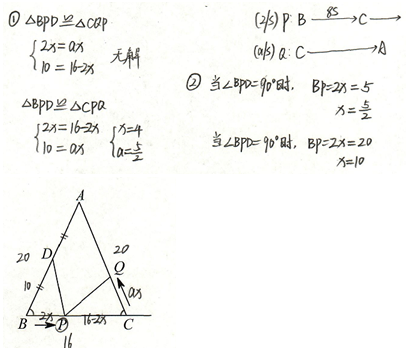 ① △BPD≌△CQP
{2x=ax
10=16-2x 无解
△BPD≌△CPQ
{2x=16-2x {x=4
10=ax a=5/2
(2/s) P: B —8s→ C →
(a/s) Q: C → A
② 当∠BPD=90°时, BP=2x=5
x=5/2
当∠BPD=90°时, BP=2x=20
x=10
A
20 D 20
Q
10 ax
B 2x P 16-2x C
16